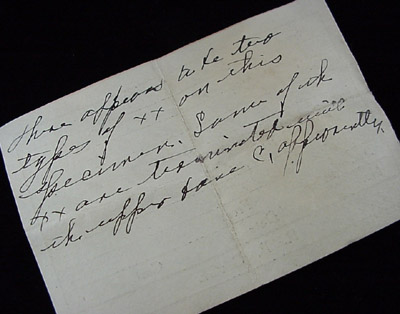 There appears to be two
types of xx on this
specimen. Some of the
xx are terminated with
the upper base C, apparently